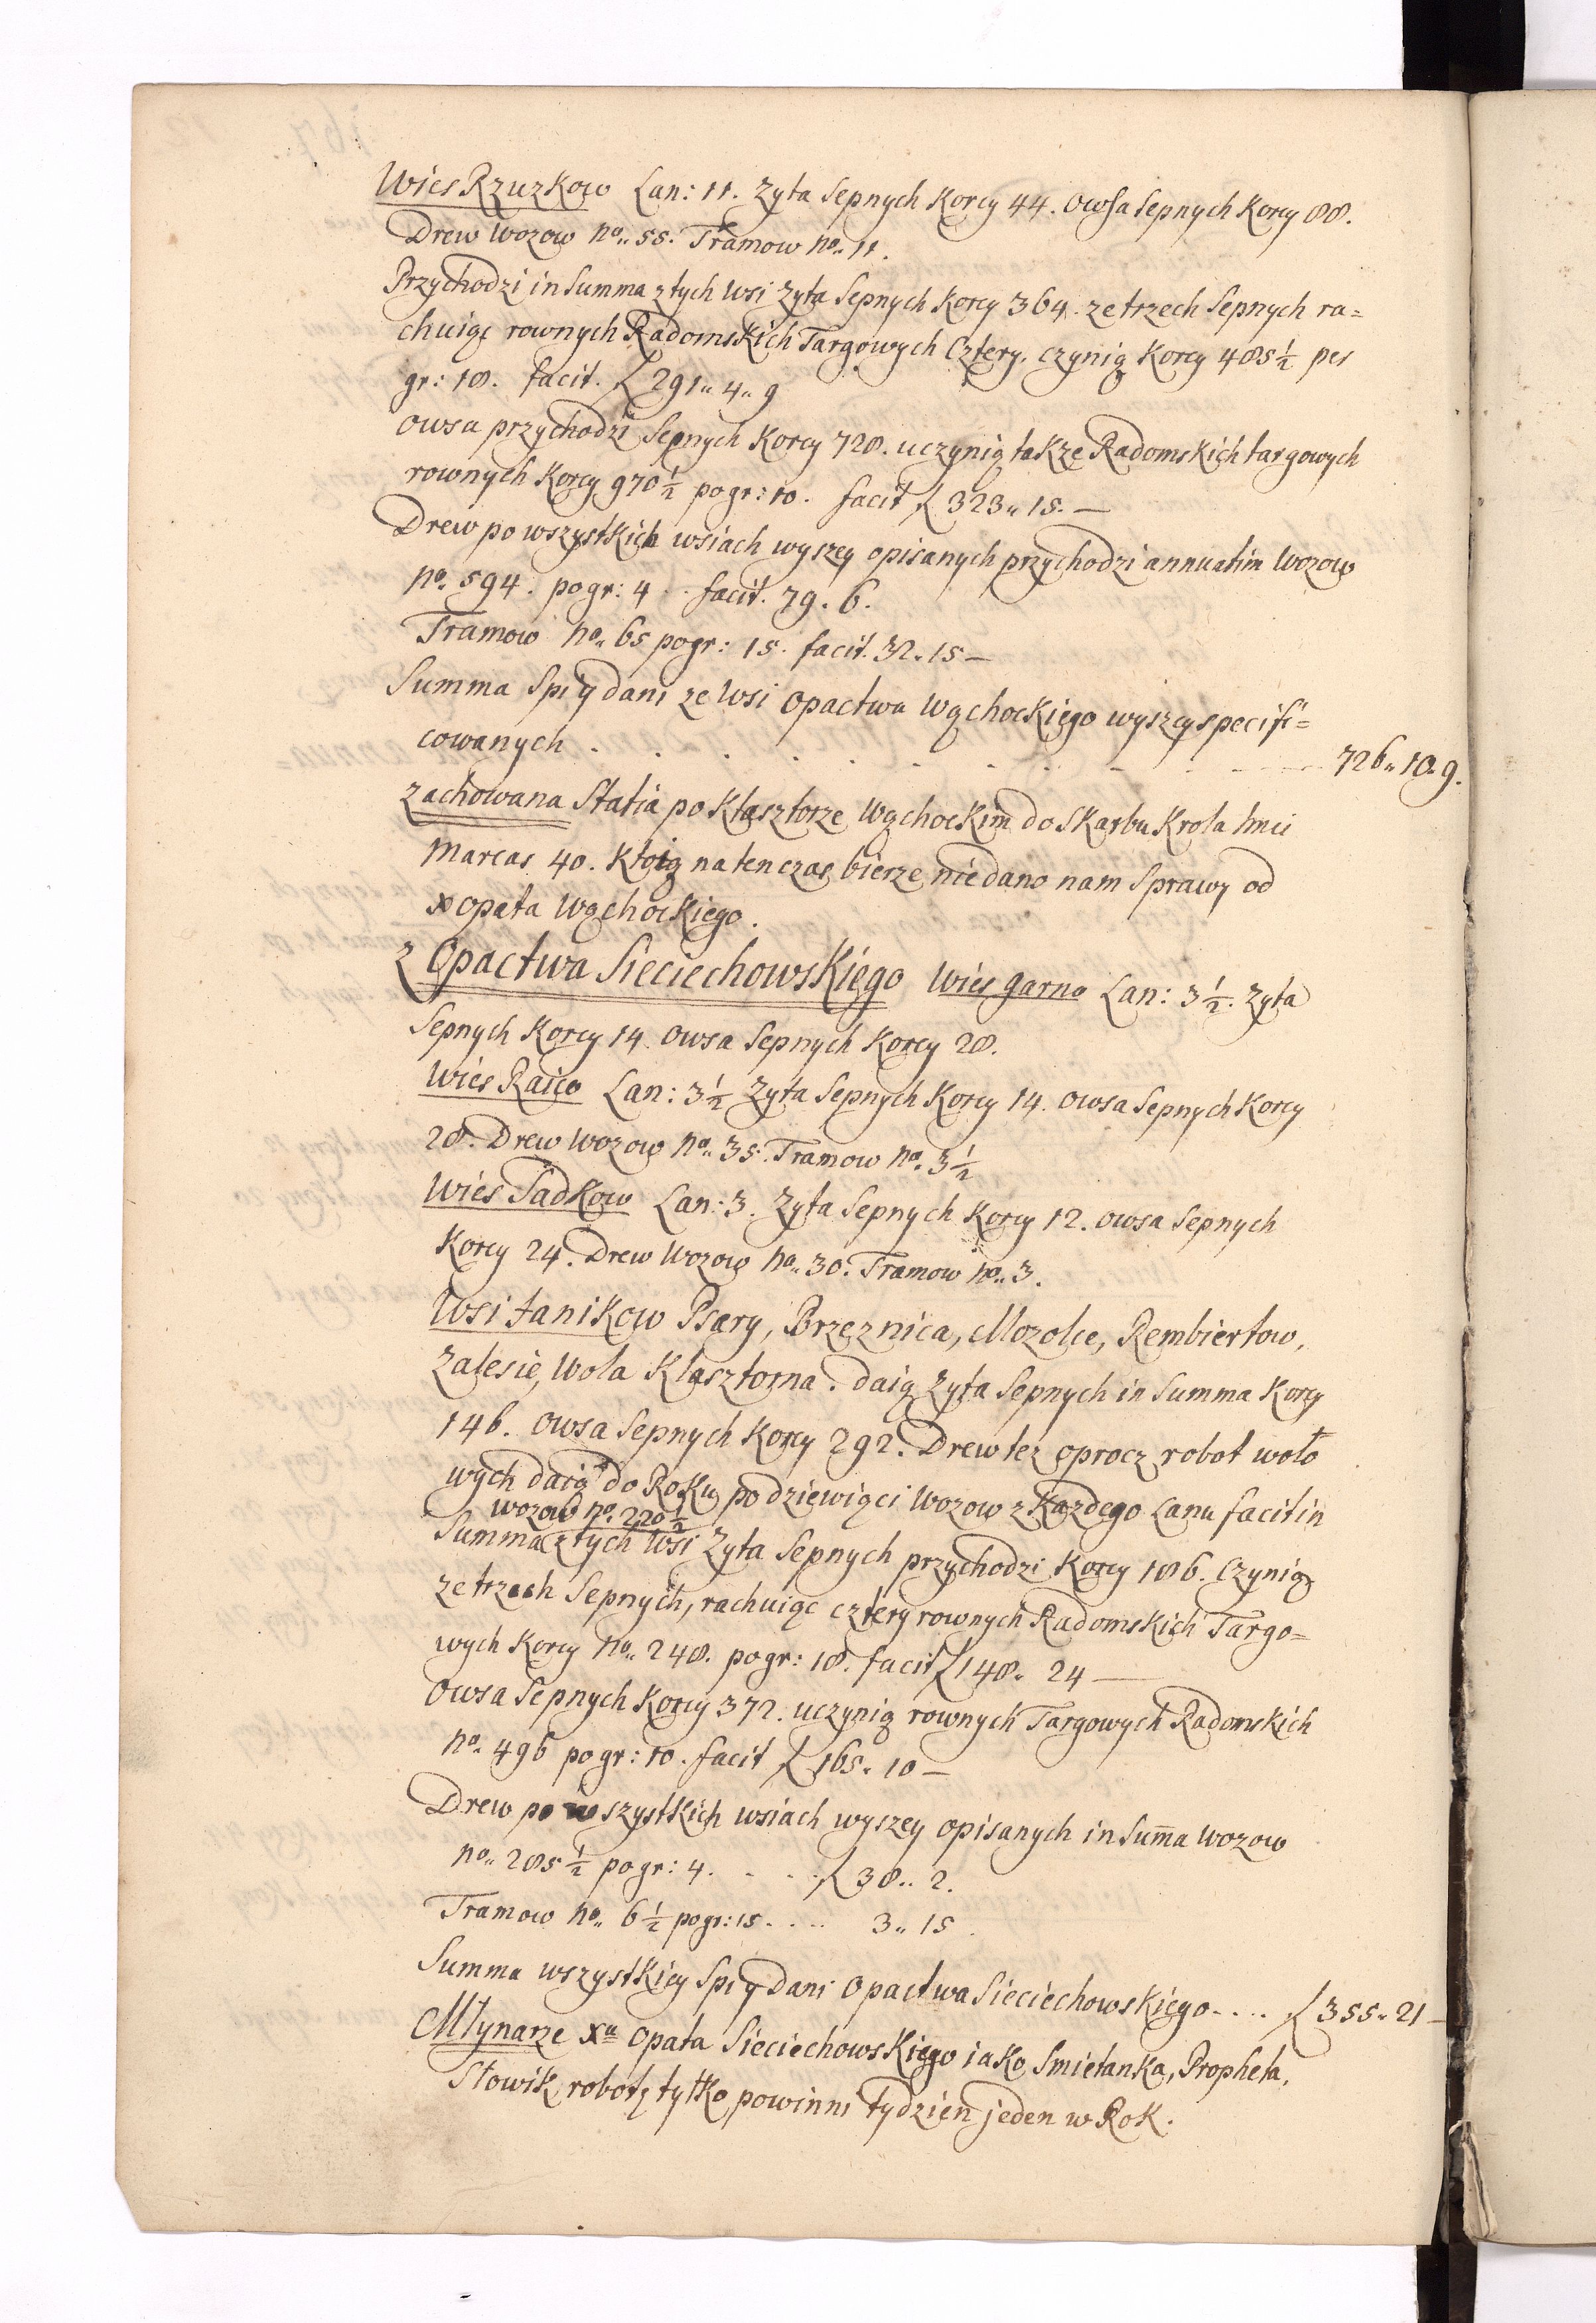 Wies Rzuzkow Lan: 11. Zyta Sepnych Korcy 44. Owsa Sepnych Korcy 88.
Drew Wozow no.. 55. Tramow no.. 11.
Przychodzi in Summa z tych Wsi Zyta Sepnych Korcy 364. ze trzech Sepnych ra=
chuiąc rownych Radomskich Targowych Cztery, czynią Korcy 485½ per
gr: 18. facit. ƒ 291.. 4.. 9
Owsa przychodzi Sepnych Korcy 728. uczynią takze Radomskich targowych
rownych Korcy 970½ po gr: 10. facit ƒ 323.. 15. —
Drew po wszystkich wsiach wyszey opisanych przychodzi annuatim Wozow
no. 594. po gr: 4. facit. 79. 6.
Tramow no.. 65 po gr: 15. facit. 32. 15 —
Summa Spiy dani ze Wsi Opactwa Wąchockiego wyszey specifi=
cowanych . . . . . . . . . . 726.. 10. 9.
Zachowana Statia po Klasztorze Wąchockim do Skarbu Krola Jmci
Marcas 40. Ktoią na ten czas bierze nie dano nam Sprawy od
x opata Wąchockiego.
z Opactwa Sieciechowskiego Wies Garno Lan: 3½. Zyta
Sepnych Korcy 14. Owsa Sepnych Korcy 28.
Wies Raiec Lan: 3½ Zyta Sepnych Korcy 14. Owsa Sepnych Korcy
28. Drew Wozow no.. 35. Tramow no. 3½
Wies Sadkow Lan: 3. Zyta Sepnych Korcy 12. Owsa Sepnych
Korcy 24. Drew Wozow no.. 30. Tramow no.. 3.
Wsi Janikow Psary, Brzeznica, Mozolce, Rembiertow,
Zalesie, Wola Klasztorna. daią Zyta Sepnych in Summa Korcy
146. Owsa Sepnych Korcy 292. Drew tez oprocz robot woło
wych daią do Roku po dziewiąci Wozow z Kazdego Lanu facit in
wozow no. 220½
Summa z tych Wsi Zyta Sepnych przychodzi Korcy 186. Czynią
ze trzech Sepnych, rachuiąc cztery rownych Radomskich Targo=
wych Korcy no.. 248. po gr: 18. facit ƒ 148.. 24 —
Owsa Sepnych Korcy 372. uczynią rownych Targowych Radomskich
no. 496 po gr: 10. facit ƒ 165. 10 —
Drew po wszystkich wsiach wyszey opisanych in Suma Wozow
no.. 285½ po gr: 4. . . . ƒ 38.. 2.
Tramow no.. 6½ po gr: 15 . . . . 3.. 15.
Summa wszystkiey Spiy Dani Opactwa Sieciechowskiego . . . . ƒ 355.. 21 —
Młynarze Xa Opata Sieciechowskiego iako Smietanka, Propheta,
Słowik, robotę tylko powinni tydzien jeden w Rok.